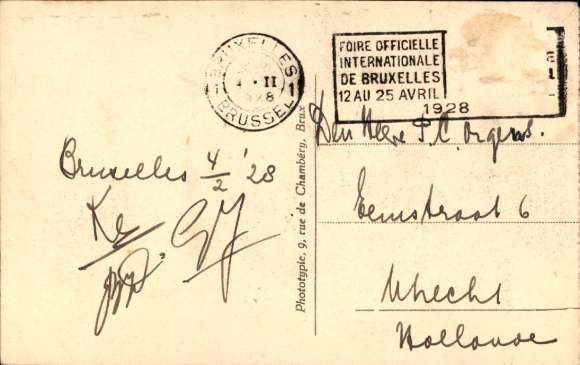 BRUXELLES
1 II 1
1928
BRUSSEL
FOIRE OFFICIELLE
INTERNATIONALE
DE BRUXELLES
12 AU 25 AVRIL
1928
Bruxelles 4/2 '28
Den Heer
Eemstraat 6
Utrecht
Hollande
Phototypie, 9, rue de Chambéry, Brux